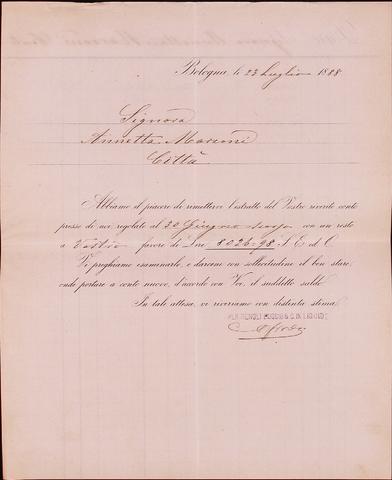 Bologna, li 23 Luglio 1888
Signora
Annetta Marconi
Città
Abbiamo il piacere di rimettervi l'estratto del Vostro riverito conto
presso di noi regolato al 30 Giugno scorso con un resto
a Vostro favore di Lire 8026.98 S. E. ed O.
Vi preghiamo esaminarlo, e darcene con sollecitudine il ben stare,
onde portare a conto nuovo, d'accordo con Voi, il suddetto saldo.
In tale attesa, vi riveriamo con distinta stima.
PER RENOLI & C. IN LIQUID.